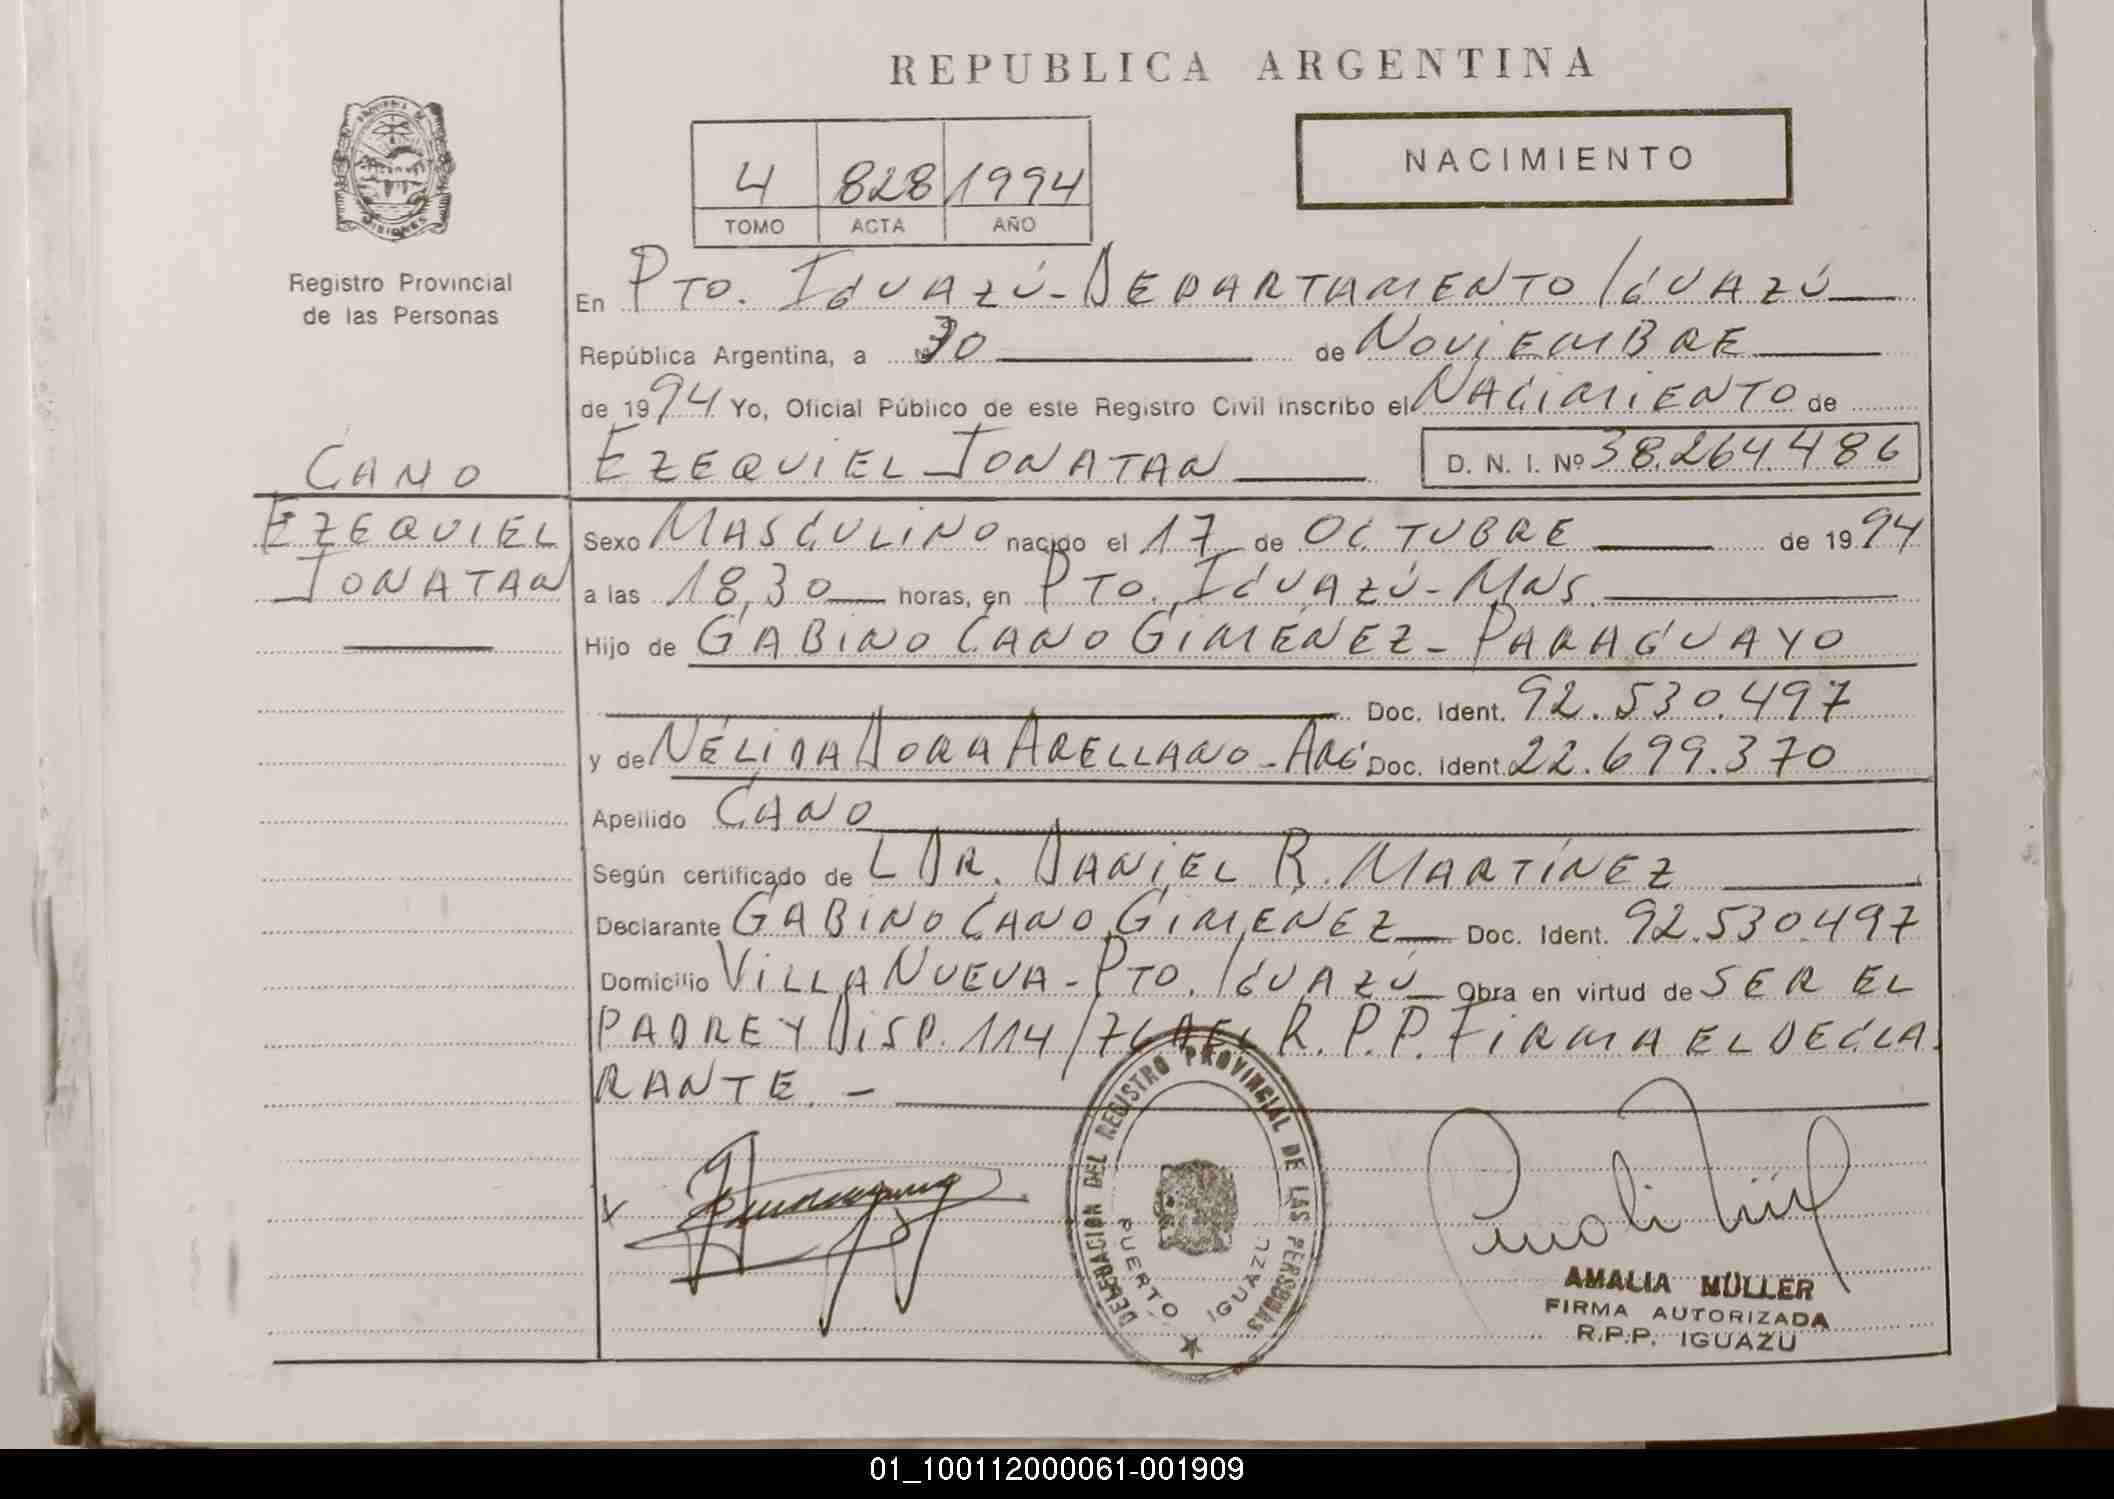 REPUBLICA ARGENTINA
NACIMIENTO
4 828 1994
TOMO ACTA AÑO
MISIONES
Registro Provincial
de las Personas
En PTO. IGUAZÚ - DEPARTAMENTO IGUAZÚ
República Argentina, a 30 de NOVIEMBRE
de 1994 Yo, Oficial Público de este Registro Civil inscribo el NACIMIENTO de
EZEQUIEL JONATAN D. N. I. Nº 38.264.486
CANO
EZEQUIEL
JONATAN
Sexo MASCULINO nacido el 17 de OCTUBRE de 1994
a las 18,30 horas, en PTO. IGUAZÚ - MNS.
Hijo de GABINO CANO GIMÉNEZ - PARAGUAYO
Doc. Ident. 92.530.497
y de NÉLIDA DORA ARELLANO - ARG Doc. Ident. 22.699.370
Apellido CANO
Según certificado de L DR. DANIEL R. MARTÍNEZ
Declarante GABINO CANO GIMÉNEZ Doc. Ident. 92.530.497
Domicilio VILLA NUEVA - PTO. IGUAZÚ Obra en virtud de SER EL
PADRE Y DISP. 114/76 DEL R.P.P. FIRMA EL DECLA-
RANTE. -
DELEGACION DEL REGISTRO PROVINCIAL DE LAS PERSONAS
PUERTO IGUAZU
AMALIA MÜLLER
FIRMA AUTORIZADA
R.P.P. IGUAZU
01_100112000061-001909